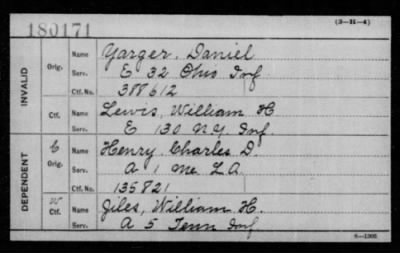 180171
(3-H-4)
INVALID
Orig.
Name Yarger, Daniel
Serv. E 32 Ohio Inf
Ctf. No. 388612
Ctf.
Name Lewis, William H
Serv. E 130 N.Y. Inf.
DEPENDENT
C
Orig.
Name Henry, Charles D.
Serv. A 1 Me. L.A.
Ctf. No. 135821
W
Ctf.
Name Giles, William H.
Serv. A 5 Tenn Inf